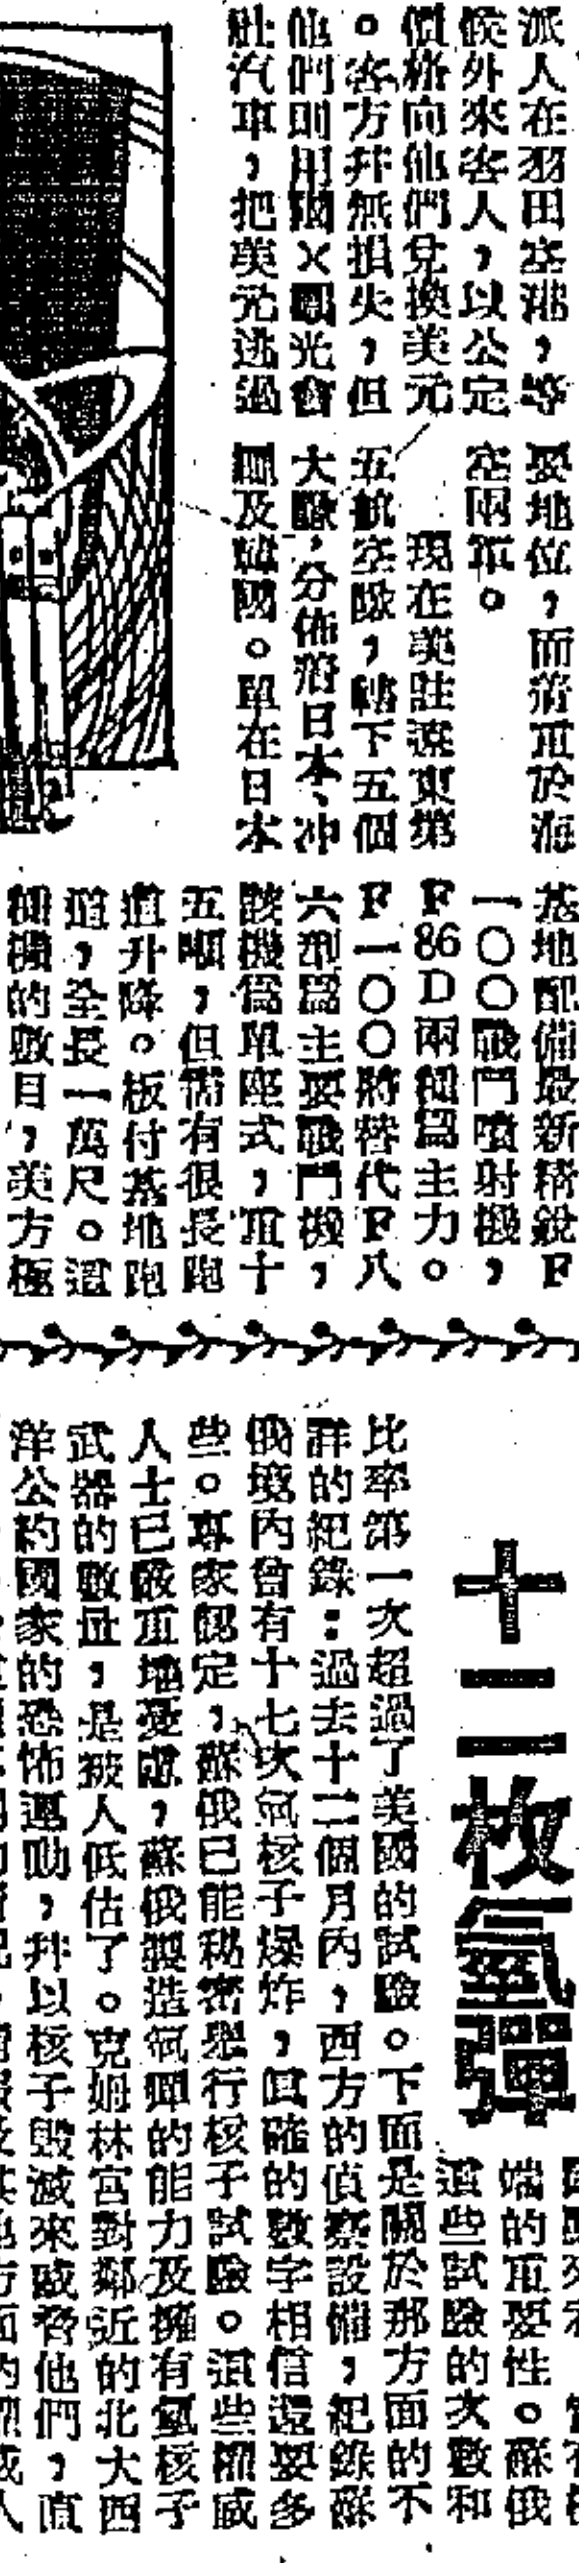 派人在羽田空港，等
候外來客人，以公定
價格向他們兌換美元
。客方幷無損失，但
他們則用國×觀光會
社汽車，把美元逃過
要地位，而着重於海
空兩軍。
現在美駐遠東第
五航空隊，轄下五個
大隊，分佈於日本、冲
繩及韓國。單在日本
基地配備最新精銳F
一〇〇戰鬥噴射機，
F86D兩種爲主力。
F一〇〇將替代F八
六型爲主要戰鬥機，
該機爲單座式，重十
五噸，但需有很長跑
道升降。板付基地跑
道，全長一萬尺。這
種機的數目，美方極
十二枚氫彈
端的重要性。蘇俄
這些試驗的次數和
比率第一次超過了美國的試驗。下面是關於那方面的不
詳的紀錄：過去十二個月內，西方的偵察設備，紀錄蘇
俄境內曾有十七次氣核子爆炸，眞確的數字相信還要多
些。專家認定，蘇俄已能秘密舉行核子試驗。這些權威
人士已嚴重地憂慮，蘇俄製造氣彈的能力及擁有氫核子
武器的數量，是被人低估了。克姆林宮對鄰近的北大西
洋公約國家的恐怖運動，幷以核子毀滅來威脅他們，直